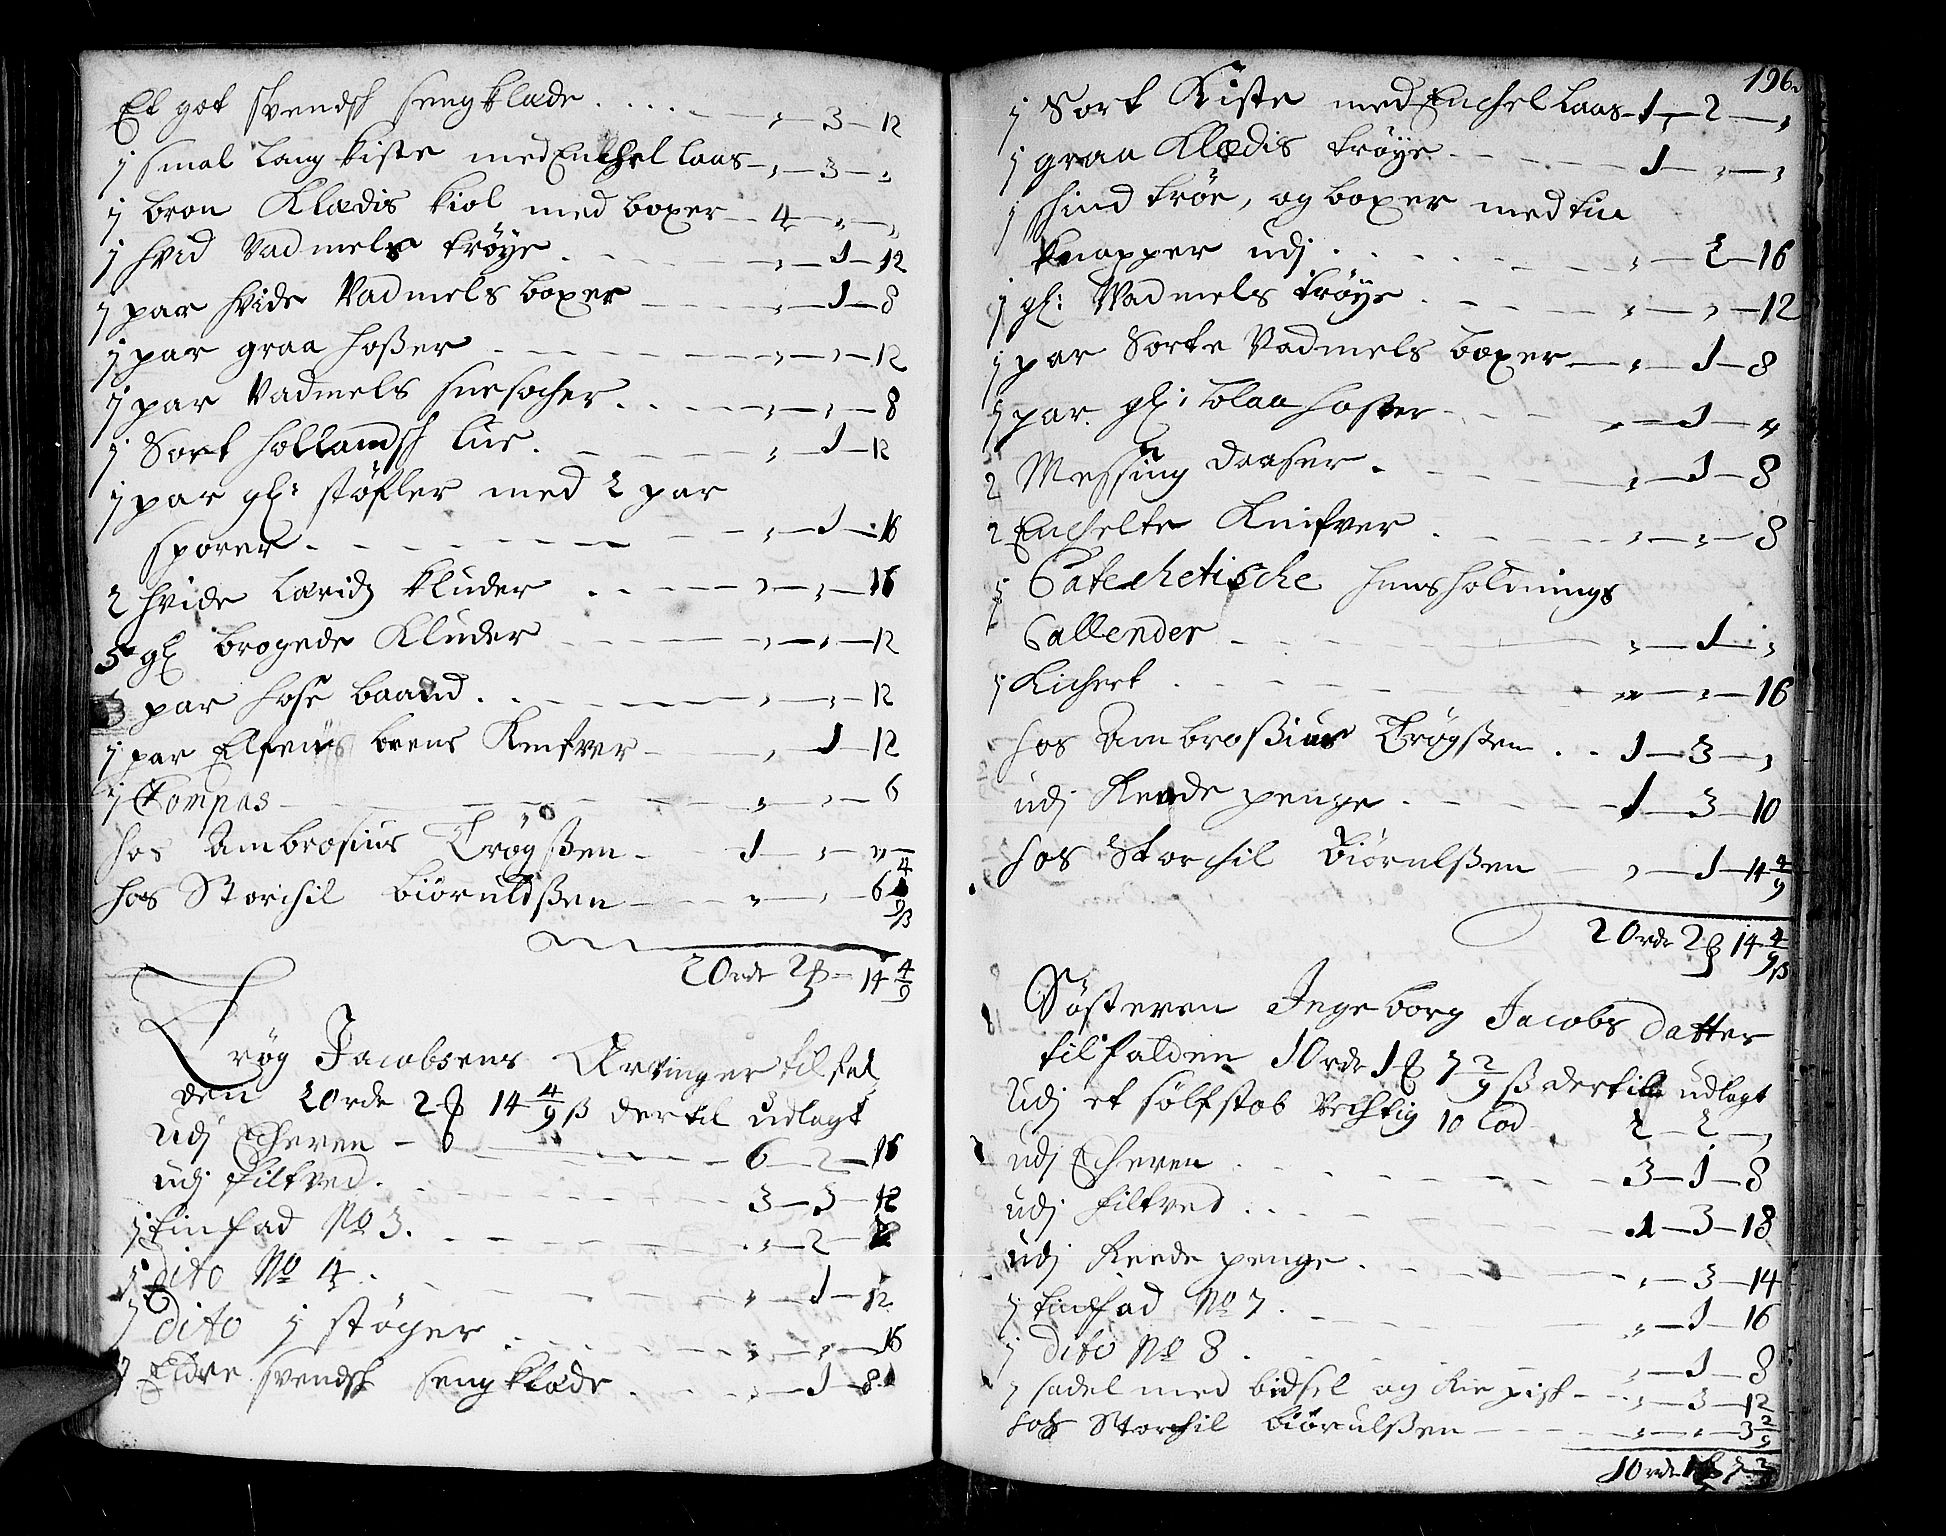 Et got svendsk sengklæde . . . . „ — 3 — 12
1 smal lang kiste med Enchel laas — „ — 3 — „
1 bron Klædis kiol med boxer — 4 — „ — „
1 hvid Vadmels trøye . — „ — 1 — 12
1 par hvide Vadmels boxer — „ — 1 — 8
1 par graa hoßer — „ — „ — 12
1 par Vadmels snesocher . . „ — „ — 8
1 Sort hollandsk lue . — „ — 1 — 12
1 par gl: støfler med 2 par
sporer . — „ — 1 — 16
2 hvide lærids kluder . . — „ — „ — 16
5 gl brogede Kluder — „ — „ — 12
3 par hose baand . . — „ — „ — 12
1 par Elfens beens Knifver — „ 1 — 12
1 Compas — „ — „ — 6
hos Ambrosius Trøgßen — 1 — „ — „
hos Storchil biörnldßen — „ — „ — 6 4/9 ß
20 rdr 2 ꝼ — 14 4/9
Trøg Jacobsens Arvinger tilfal
den 20 rdr 2 ꝼ 14 4/9 ß dertil udlagt
Udj Echeren — 6 — 2 — 16
udj filtved . — 3 — 3 — 12
1 tinfad No 3 . — „ — 2 —
1 dito No 4 . — „ — 1 — 12
1 Dito 1 støger . — „ — „ — 16
1 Eldre svendsk sengklæde . — „ — 1 — 8
196.
1 Sort Kiste med Enchel Laas — 1 — 2 — „
1 graa Klædis trøye — 1 — „ — „
1 skind trøe, og boxer med tin
knapper udj . — „ — 2 — 16
1 gl: Vadmels trøye . — „ — „ — 12
1 par Sorte Vadmels boxer — „ — 1 — 8
1 par gl: blaa hoßer — „ — 1 — „
2 Messing daaser . — „ — 1 — 8
2 Enchelte Knifver . — „ — „ — 8
1 Catechetische huusholdnings
Callender — „ — 1 — „
1 Kichert . — „ — „ — 16
hos Ambroßius Trøgßen . . 1 — 3 — „
udj Reede penge . — 1 — 3 — 10
hos Storchil Biörnlßen — „ — 1 — 11 4/9
20 rdr 2 ꝼ 14 4/9 ß
Søsteren Ingeborg Jacobs datter
tilfalden 10 rdr 1 ꝼ 7 2/9 ß dertil udlagt
Udj et sølfstob vechtig 10 lod . 2 — 2 — „
udj Echeren . — 3 — 1 — 8
udj filtved . . — 1 — 3 — 18
udj Reede penge . — „ — 3 — 14
1 tinfad No 7 . — „ — 1 — 16
1 Dito No 8 . — „ — 1 — 8
1 sadel med bidsel og Rie pisk — „ — 3 — 12
hos Storchil biörnlßen — „ — „ — 3 2/9
10 rdr 1 ꝼ 7 2/9